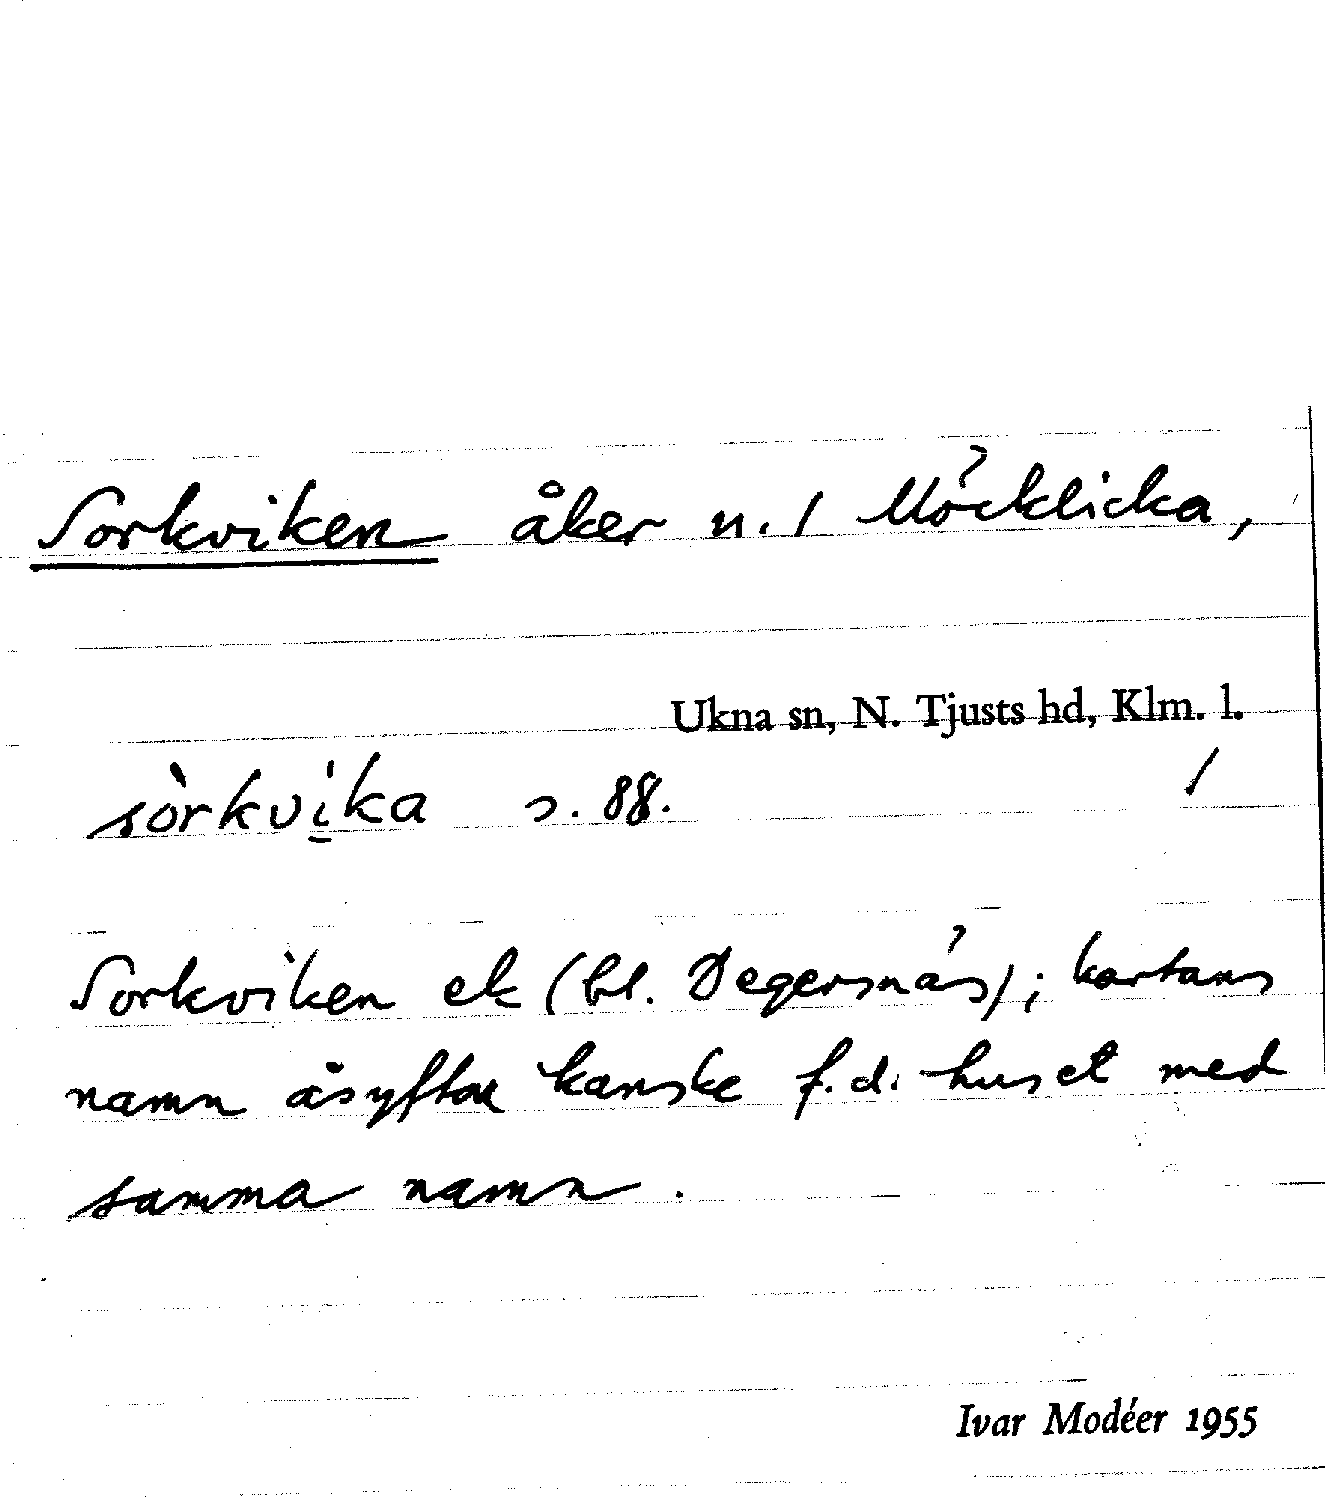 Sorkviken åker n. 1 Möcklicka,
Ukna sn, N. Tjusts hd, Klm. l.
sòrkvi̠ka s. 88. /
Sorkviken ek (bl. Degersnäs); kartans
namn åsyftar kanske f.d. huset med
samma namn.
Ivar Modéer 1955